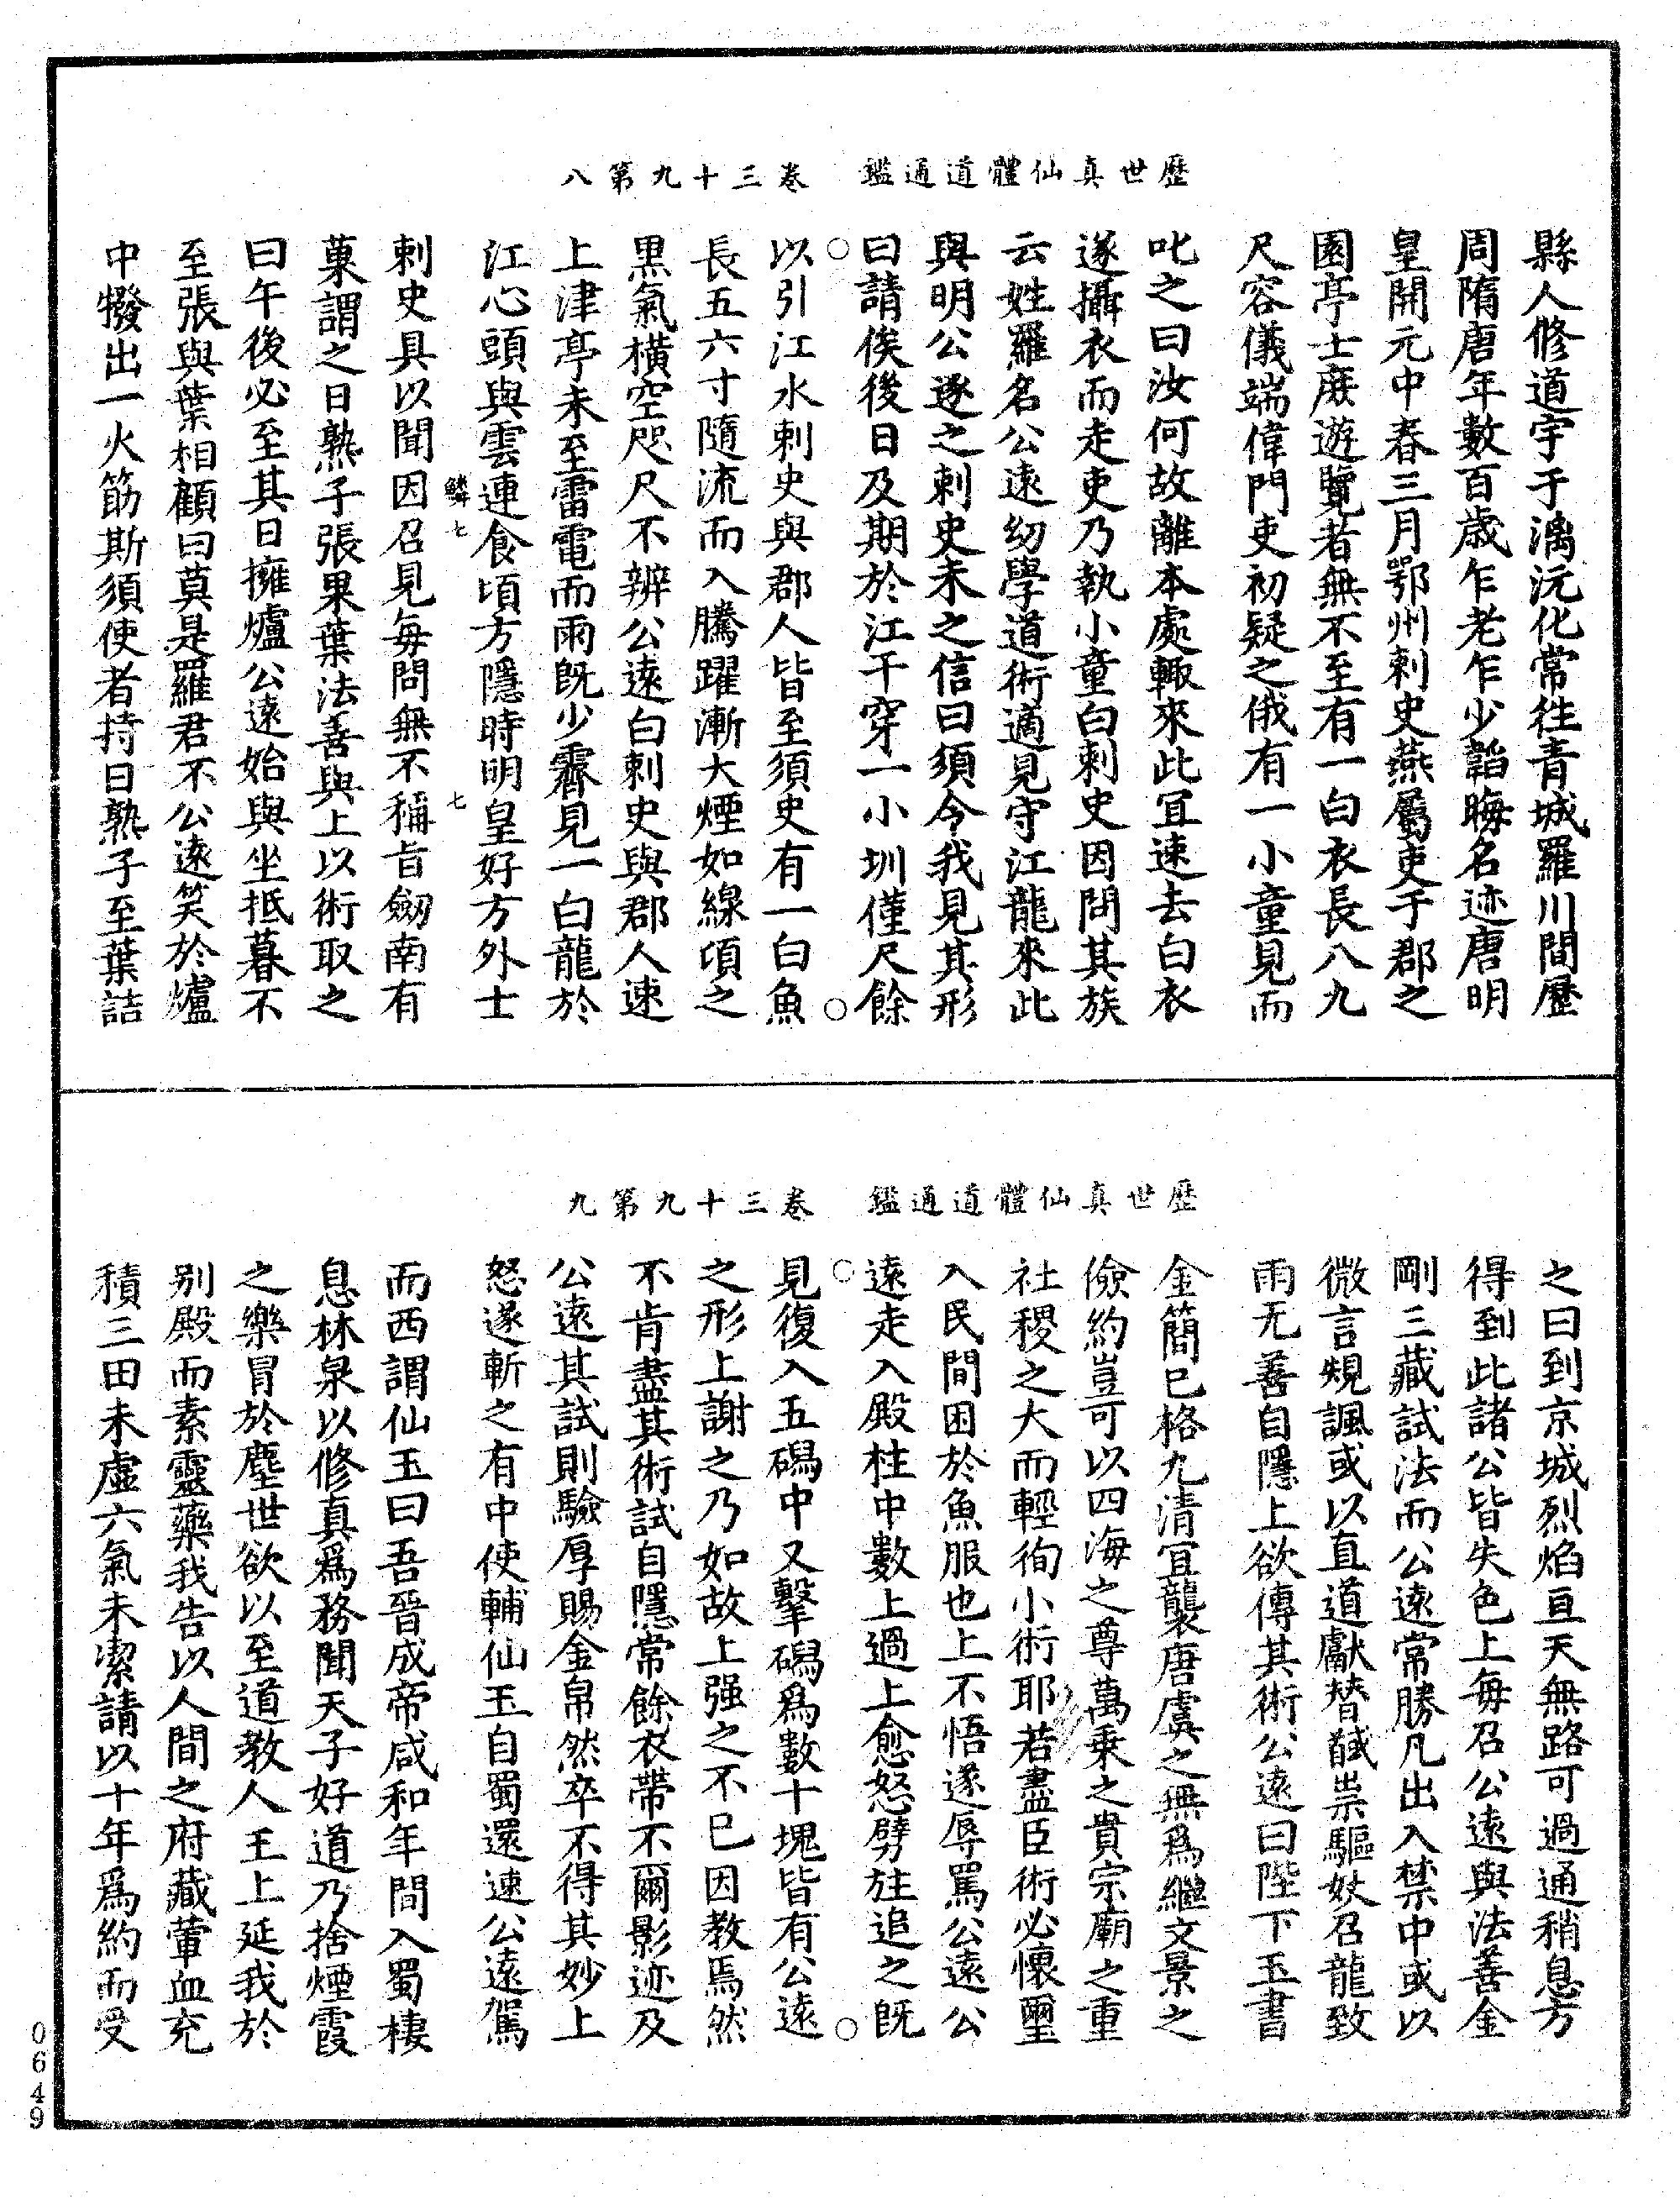 歷世真仙體道通鑑　卷三十九第八
縣人修道宇于漓沅化常往青城羅川間歷
周隋唐年數百歲乍老乍少謟晦名迹唐明
皇開元中春三月鄂州刺史燕屬吏于郡之
園亭士庶遊覽者無不至有一白衣長八九
尺容儀端偉門吏初疑之俄有一小童見而
叱之曰汝何故離本處輙來此冝速去白衣
遂攝衣而走吏乃執小童白刺史因問其族
云姓羅名公遠幼學道術適見守江龍來此
與明公逐之刺史未之信曰須令我見其形
曰請俟後日及期於江干穿一小圳僅尺餘
以引江水刺史與郡人皆至須史有一白魚
長五六寸隨流而入騰躍漸大煙如線項之
黒氣橫空咫尺不辨公遠白刺史與郡人速
上津亭未至雷電而雨旣少霽見一白龍於
江心頭與雲連食頃方隱時明皇好方外士
鱗七　七
刺史具以聞因召見每問無不稱旨劒南有
菓謂之日熟子張果葉法善與上以術取之
曰午後必至其日擁爐公遠始與坐抵暮不
至張與葉相顧曰莫是羅君不公遠笑於爐
中撥出一火筯斯須使者持日熟子至葉詰
歷世真仙體道通鑑　卷三十九第九
之曰到京城烈焰亘天無路可過通稍息方
得到此諸公皆失色上每召公遠與法善金
剛三藏試法而公遠常勝凡出入禁中或以
微言規諷或以直道獻替馘祟驅妖召龍致
雨无善自隱上欲傳其術公遠曰陛下玉書
金簡已格九清冝襲唐虞之無爲繼文景之
儉約豈可以四海之尊萬乗之貴宗廟之重
社稷之大而輕徇小術耶若盡臣術必懷璽
入民間困於魚服也上不悟遂辱罵公遠公
遠走入殿柱中數上過上愈怒劈柱追之旣
見復入五磶中又擊磶爲數十塊皆有公遠
之形上謝之乃如故上强之不已因教焉然
不肯盡其術試自隱常餘衣帶不爾影迹及
公遠其試則驗厚賜金帛然卒不得其妙上
怒遂斬之有中使輔仙玉自蜀還速公遠駕
而西謂仙玉曰吾晉成帝咸和年間入蜀棲
息林泉以修真爲務聞天子好道乃捨煙霞
之樂冒於塵世欲以至道教人王上延我於
别殿而素靈藥我告以人間之府藏葷血充
積三田未虛六氣未潔請以十年爲約而受
0649